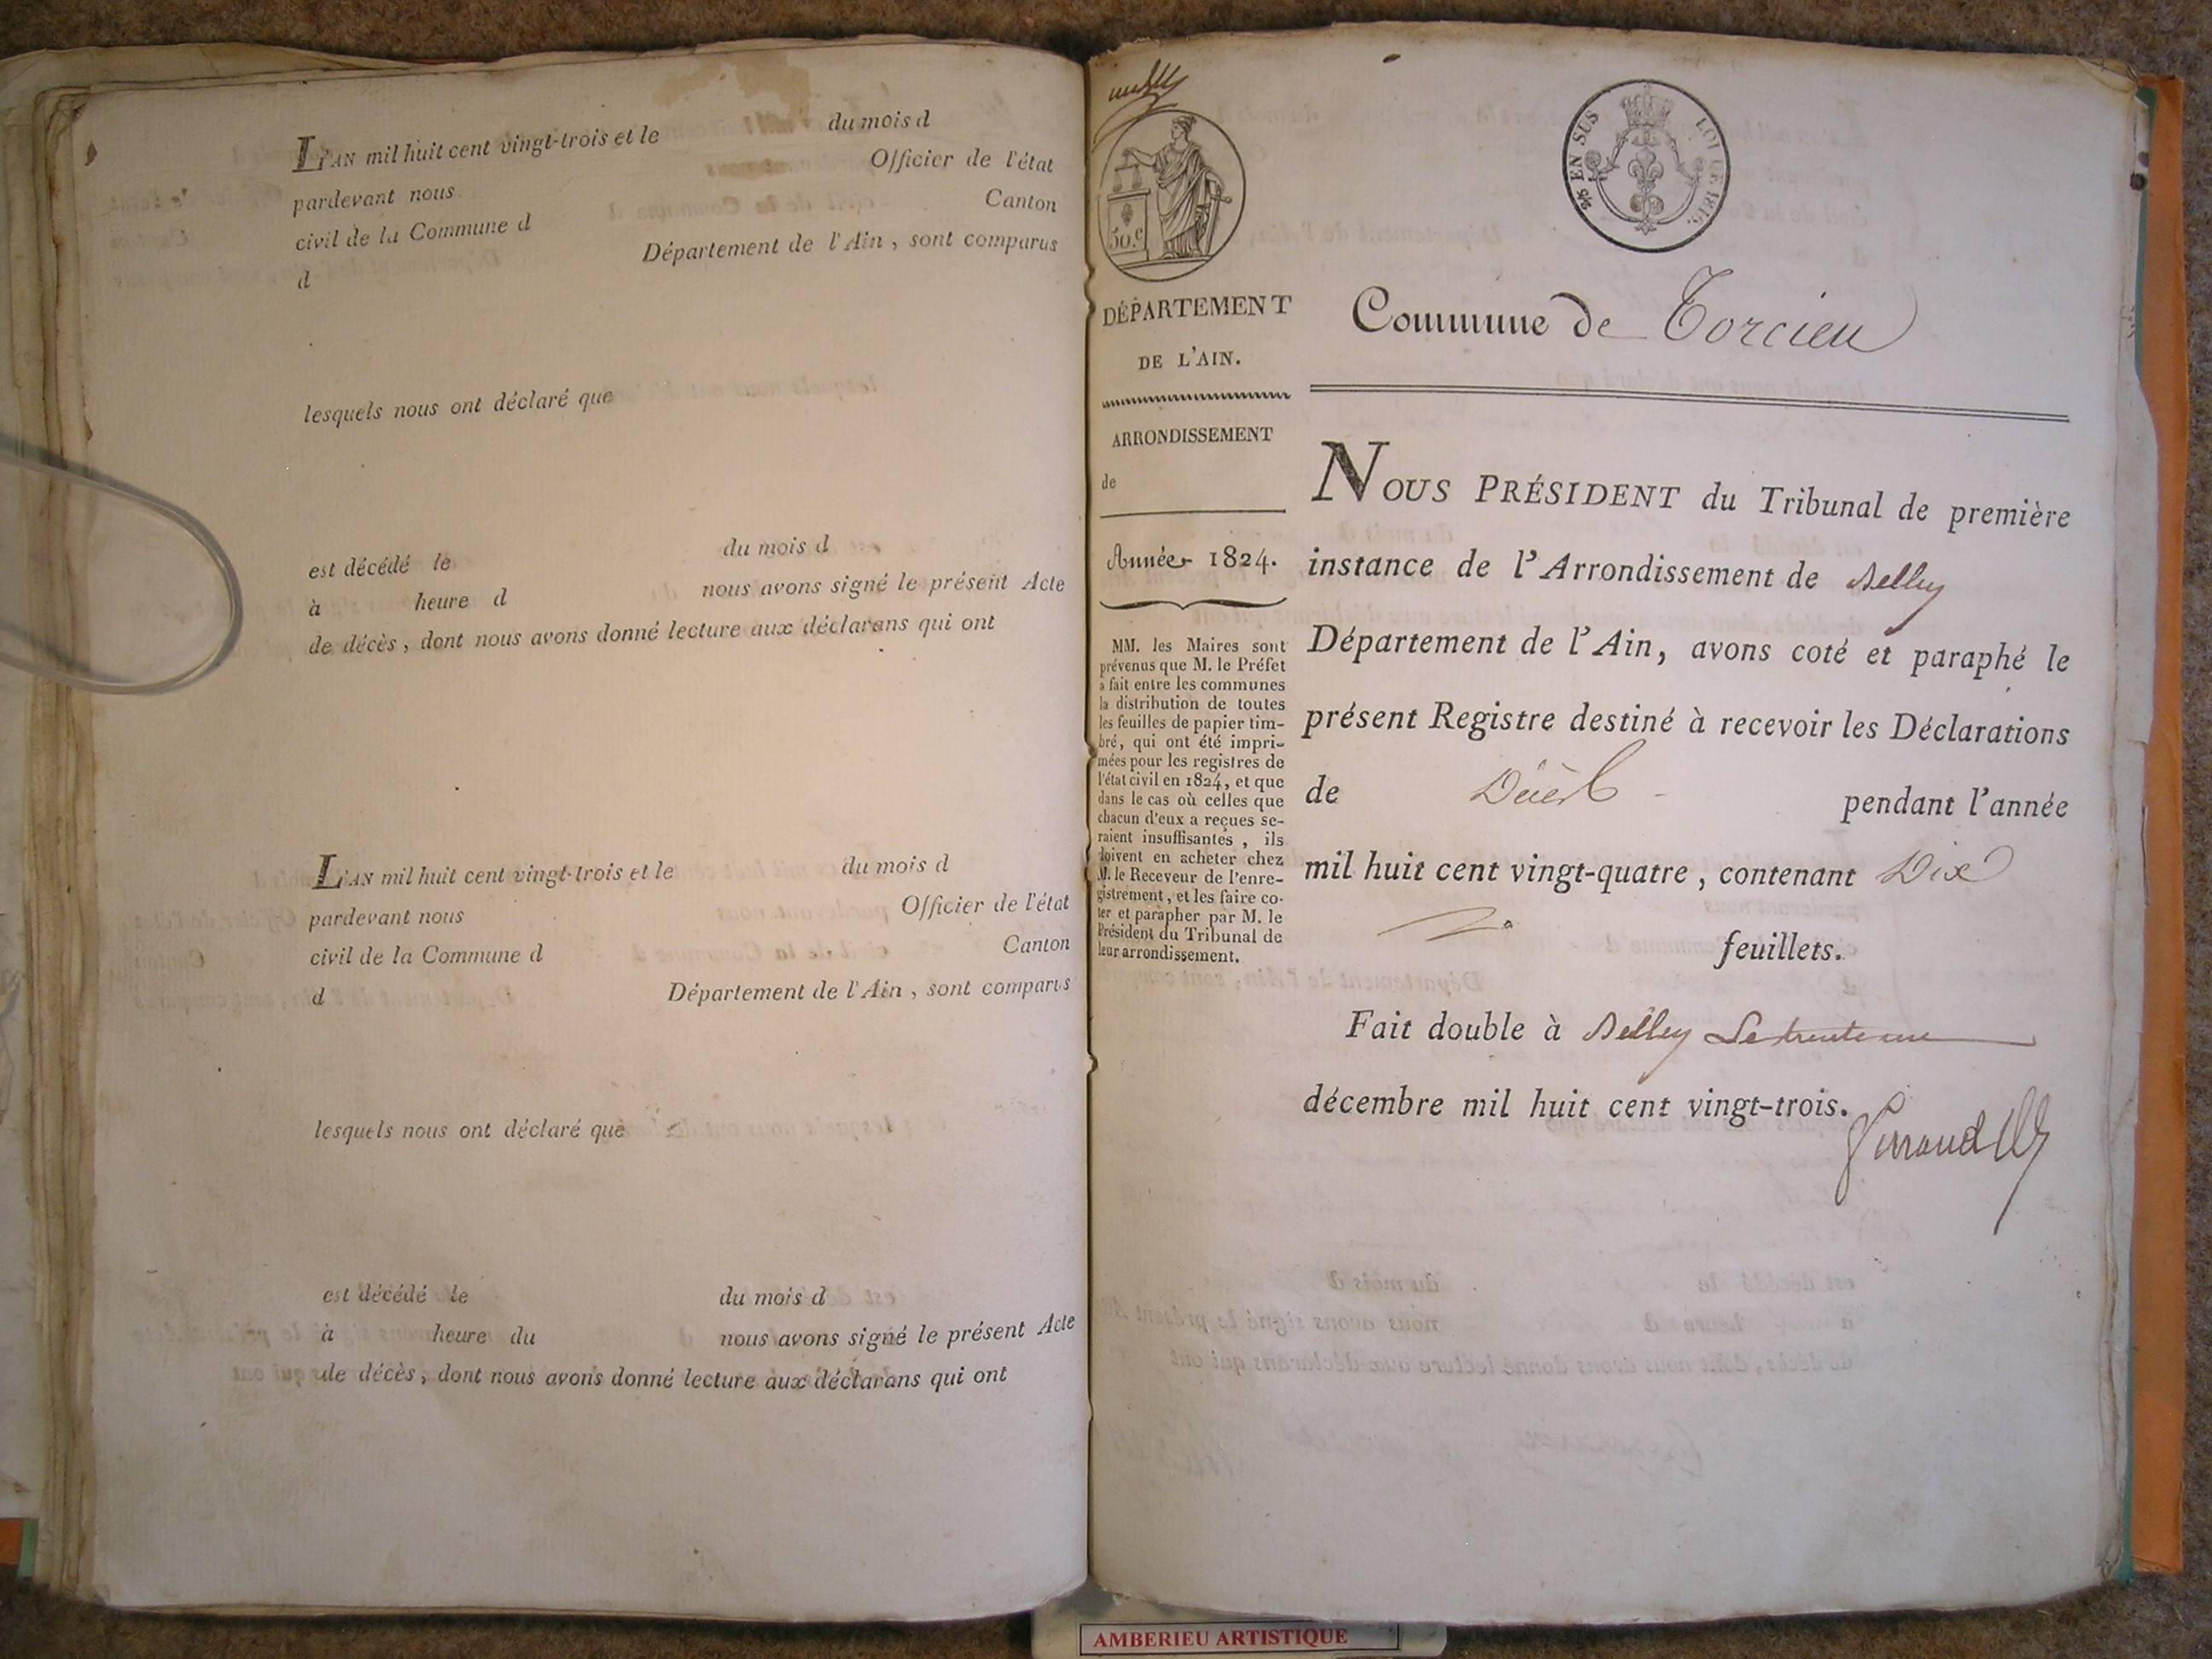 L'AN mil huit cent vingt-trois et le du mois d
pardevant nous Officier de l'état
civil de la Commune d Canton
d Département de l'Ain, sont comparus
lesquels nous ont déclaré que
est décédé le du mois d
à heure d nous avons signé le présent Acte
de décès, dont nous avons donné lecture aux déclarans qui ont
L'AN mil huit cent vingt-trois et le du mois d
pardevant nous Officier de l'état
civil de la Commune d Canton
d Département de l'Ain, sont comparus
lesquels nous ont déclaré que
est décédé le du mois d
à heure du nous avons signé le présent Acte
de décès, dont nous avons donné lecture aux déclarans qui ont
50.c
DÉPARTEMENT
DE L'AIN.
ARRONDISSEMENT
de
Année 1824.
MM. les Maires sont
prévenus que M. le Préfet
a fait entre les communes
la distribution de toutes
les feuilles de papier tim-
bré, qui ont été impri-
mées pour les registres de
l'état civil en 1824, et que
dans le cas où celles que
chacun d'eux a reçues se-
raient insuffisantes, ils
doivent en acheter chez
M. le Receveur de l'enre-
gistrement, et les faire co-
ter et parapher par M. le
Président du Tribunal de
leur arrondissement.
EN SUS LOI DE 1816.
Commune de Torcieu
NOUS PRÉSIDENT du Tribunal de première
instance de l'Arrondissement de Belley
Département de l'Ain, avons coté et paraphé le
présent Registre destiné à recevoir les Déclarations
de Décès pendant l'année
mil huit cent vingt-quatre, contenant Dix
feuillets.
Fait double à Belley Le trente un
décembre mil huit cent vingt-trois.
AMBERIEU ARTISTIQUE